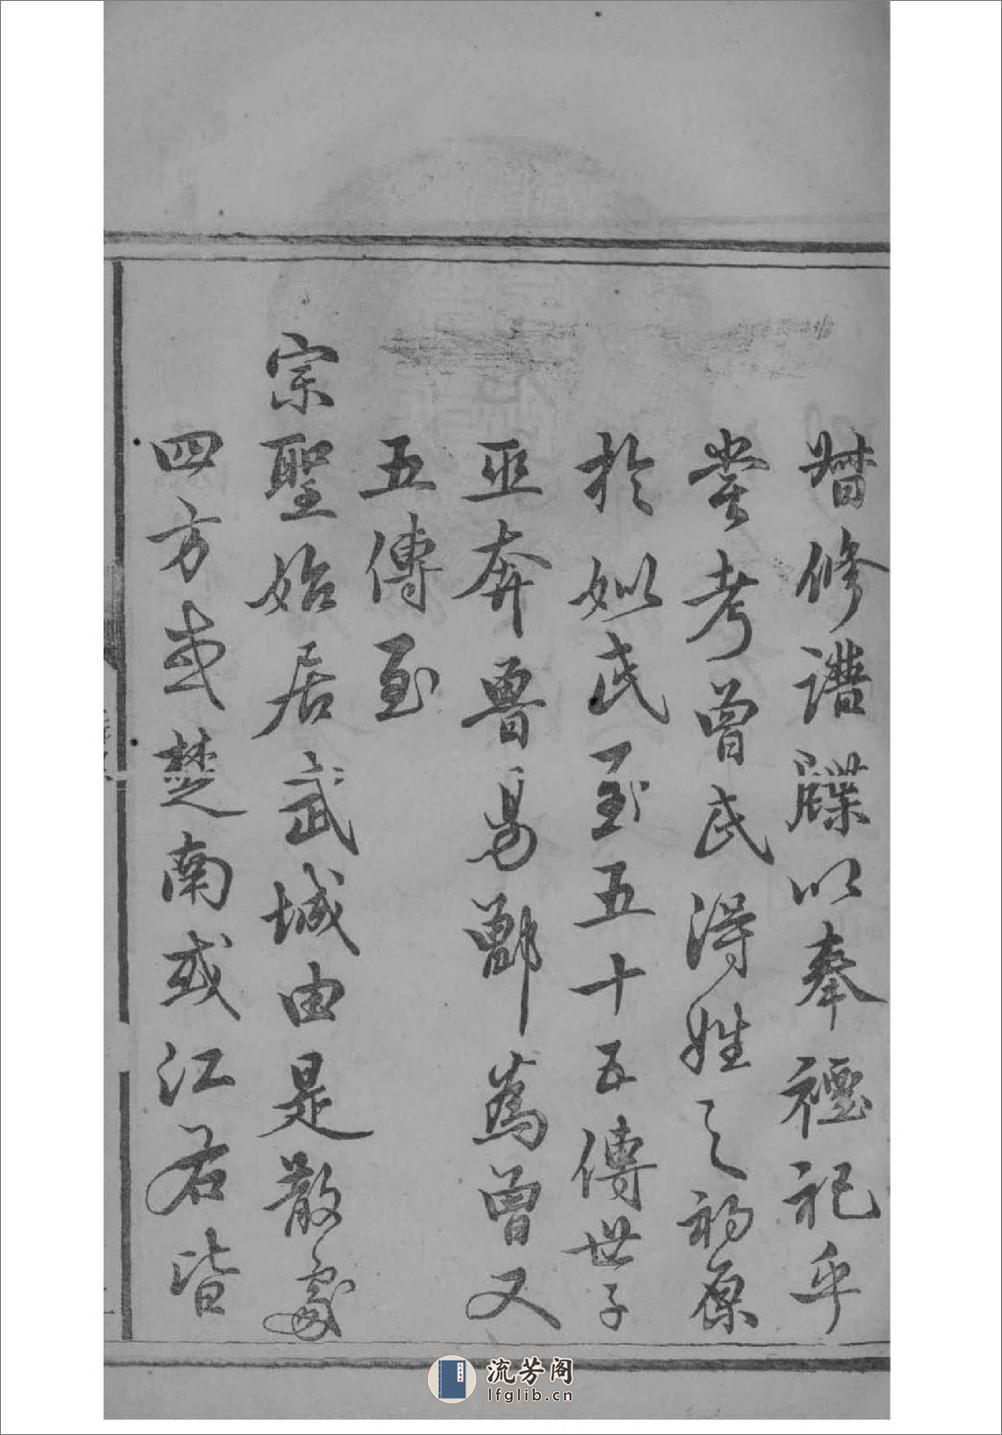 譜修譜牒以奉禋祀乎
嘗考曾氏得姓之初原
於姒氏至五十五傳世子
巫奔魯易鄫為曾又
五傳至
宗聖始居武城由是散處
四方或楚南或江右皆
流芳阁
lfglib.cn